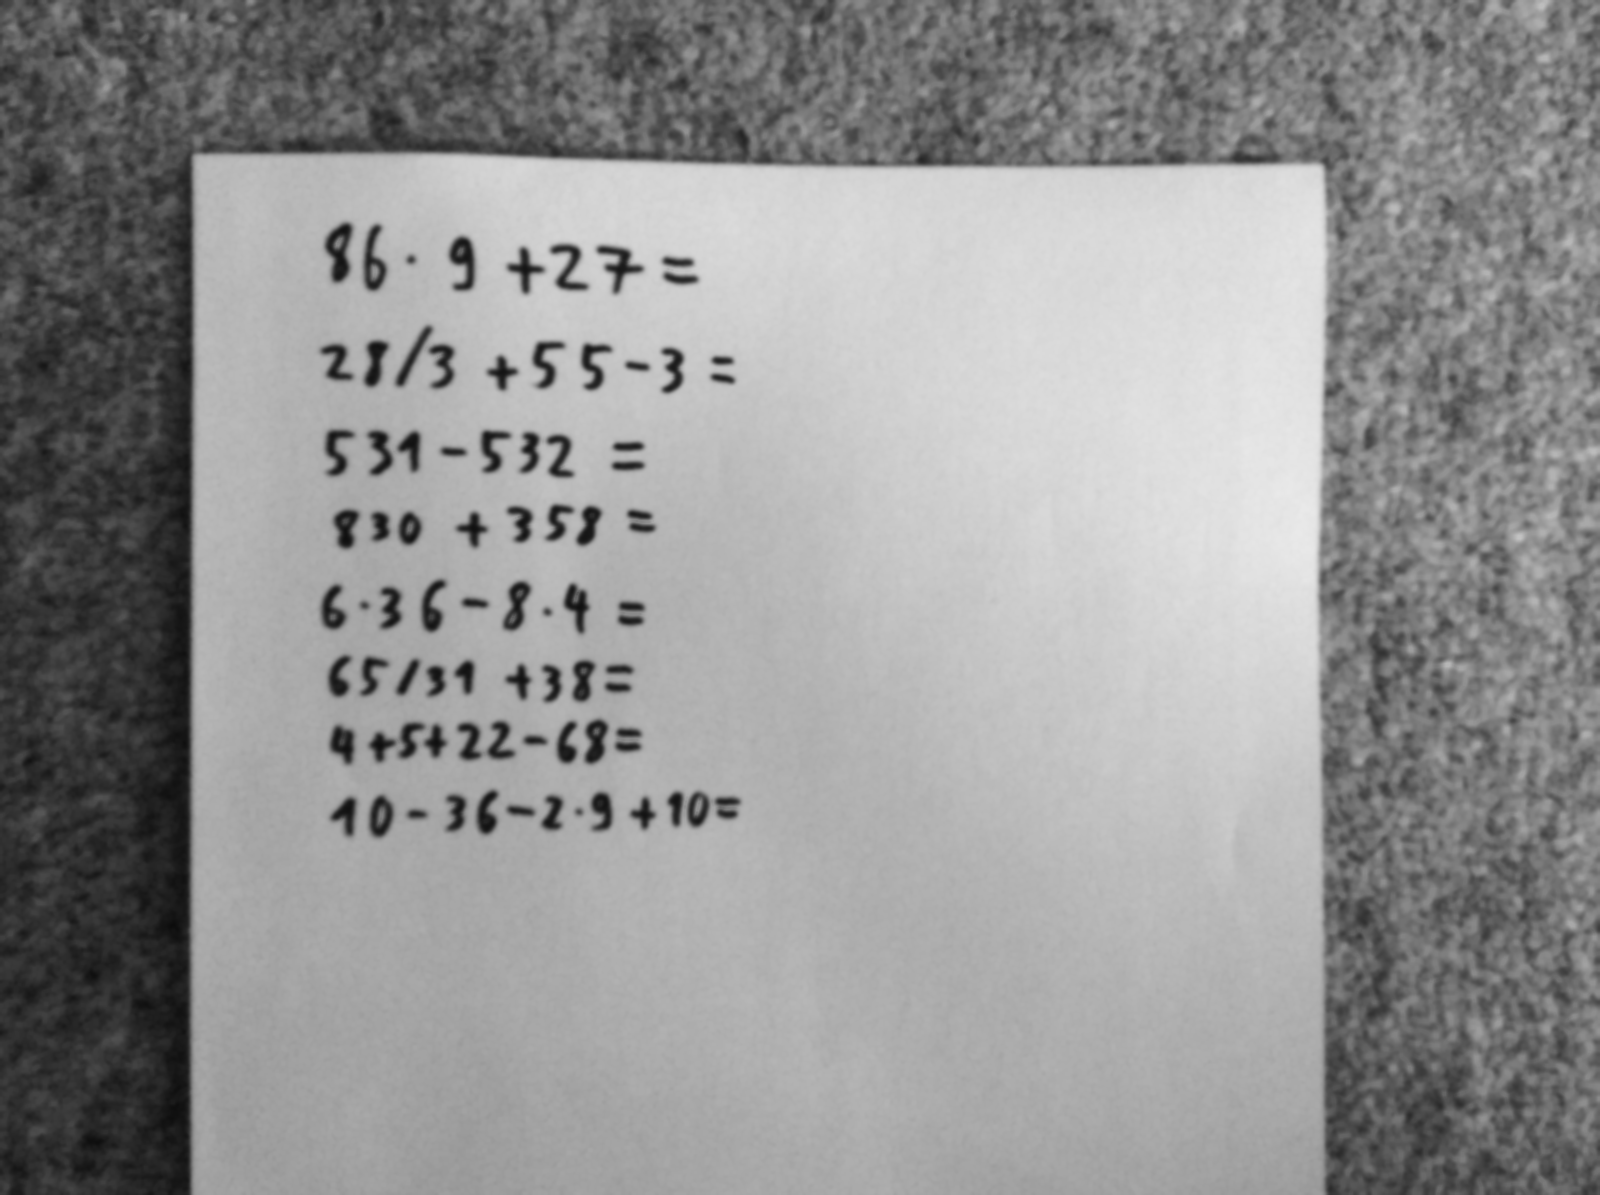 86 · 9 + 27 =
28/3 + 55 - 3 =
531 - 532 =
830 + 358 =
6 · 36 - 8 · 4 =
65/31 + 38 =
4 + 5 + 22 - 68 =
10 - 36 - 2 · 9 + 10 =